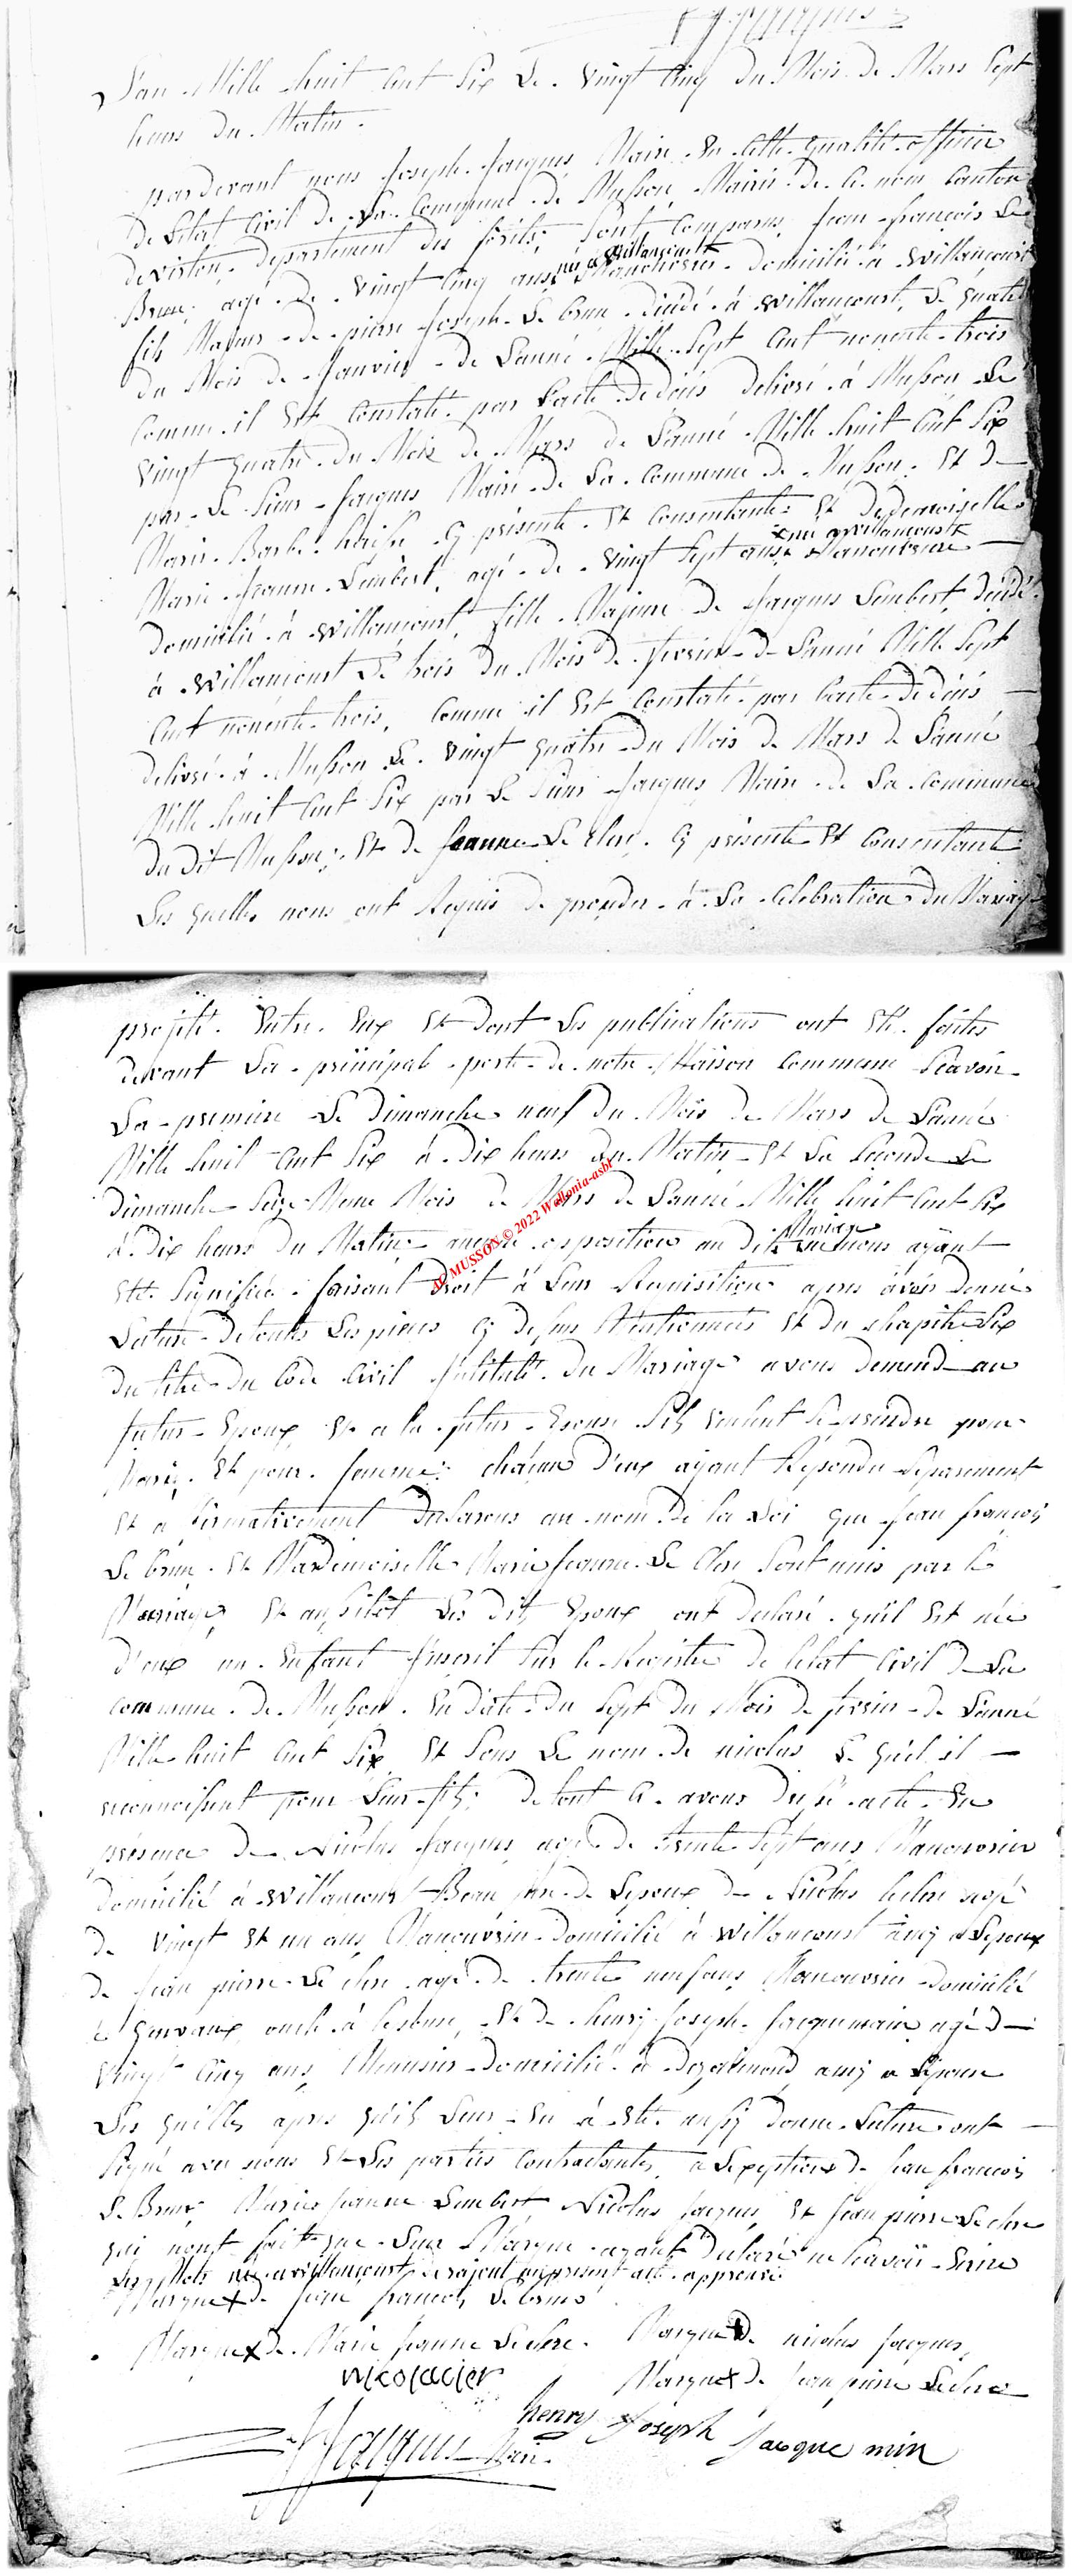 L'an Mille huit Cent Six Le vingt Cinq du Mois de Mars Sept
heures du Matin.
pardevant nous Joseph Jacques Maire En Cette qualité officier
de L'état Civil de La Commune de Musson, Mairie de Ce nom Canton
de virton, departement des forêts; Sont Comparus, Jean françois Le
Brun, agé de vingt Cinq ans, né à Willancourt Manouvrier domicilié à Willancourt
fils Majeur de pierre Joseph Le brun décédé à Willancourt, Le quatre
du Mois de Janvier de L'anné Mille Sept Cent nonente trois
Comme il Est Constaté par L'acte de décès délivré à Musson Le
vingt quatre du Mois de Mars de L'anné Mille huit Cent Six
par Le Sieur Jacques Maire de La Commune de Musson. Et de
Marie Barbe Cy présente Et Consentante Et De Demoiselle
Marie Jeanne Limbert, agé de vingt Sept ans, née à Willancourt Manouvriere
domicilié à Willancourt, fille Majeure de Jacques Limbert, décédé
à Willancourt Le trois du Mois de fevrier de L'anné Mille Sept
Cent nonente trois, Comme il Est Constaté par L'acte de décès
delivré à Musson Le vingt quatre du Mois de Mars de L'anné
Mille huit Cent Six par Le Sieur Jacques Maire de La Commune
du dit Musson; Et de Jeanne Le Clerc Cy présente Et Consentante
Les quelles nous ont Requis de proceder à La Celebration du Mariage
projété Entre Eux Et Dont Les publications ont Eté faites
devant La principale porte de notre Maison Commune Scavoir
La premiere Le dimanche neuf du Mois de Mars de L'anné
Mille huit Cent Six à Dix heures du Matin Et La Seconde Le
Dimanche Seize Meme Mois de Mars de L'anné Mille huit Cent Six
à Dix heures du Matin aucune opposition au dit Mariage nous ayant
Eté Signifié faisant Droit à Leur Requisition apres avoir Donné
Lecture de toutes Les pieces Cy dessus Mentionnées Et du chapitre Six
Du titre du Code Civil Intitulé du Mariage avons demandé au
futur Epoux Et a la futur Epouse S'ils veulent Se prendre pour
Mari Et pour femme; chacun D'eux ayant Répondu Séparement
Et affirmativement Declarons au nom De la Loi que Jean françois
Le brun Et Mademoiselle Marie Jeanne Le Clerc Sont unis par le
Mariage Et aussitôt Les dits Epoux ont déclaré qu'il Est née
d'eux un Enfant Inscrit Sur le Registre de l'état Civil de La
Commune de Musson En date du Sept du Mois de fevrier de L'anné
Mille huit Cent Six Et Sous Le nom de nicolas Le quel il
reconnoissent pour Leur fils; de tout Ce avons Dressé acte En
présence de Nicolas Jacques agé de trente Sept ans Manouvrier
domicilié à Willancourt Beau de L'epoux de Nicolas agé
de vingt Et un ans Manouvrier domicilié à Willancourt amy a L'epoux
de Jean pierre Le Clerc agé de trente neuf ans Manouvrier domicilié
à oncle à L'epouse, Et de henry Joseph Jacquemain agé de
vingt Cinq ans, Menuisier domicilié à amy a L'epouse
Les quelles apres qu'il Leur En à Eté aussy Donné Lecture ont
Signé avec nous Et Les parties Contractantes, a L'exeption de Jean françois
Le Brun Marie Jeanne Limbert Nicolas Jacques, Et Jean pierre Le clerc
qui n'ont fait que Leur Marque ayant Déclaré ne Scavoir Ecrire
Les Mots née à Willancourt approuvé
Marque X de Jean françois Le brun
Marque X de Marie Jeanne Leclerc. Marque X de nicolas Jacques
Marque X de Jean pierre Leclerc
henry Joseph Jacque min
Jacques Maire
AC MUSSON © 2022 Wallonia-asbl